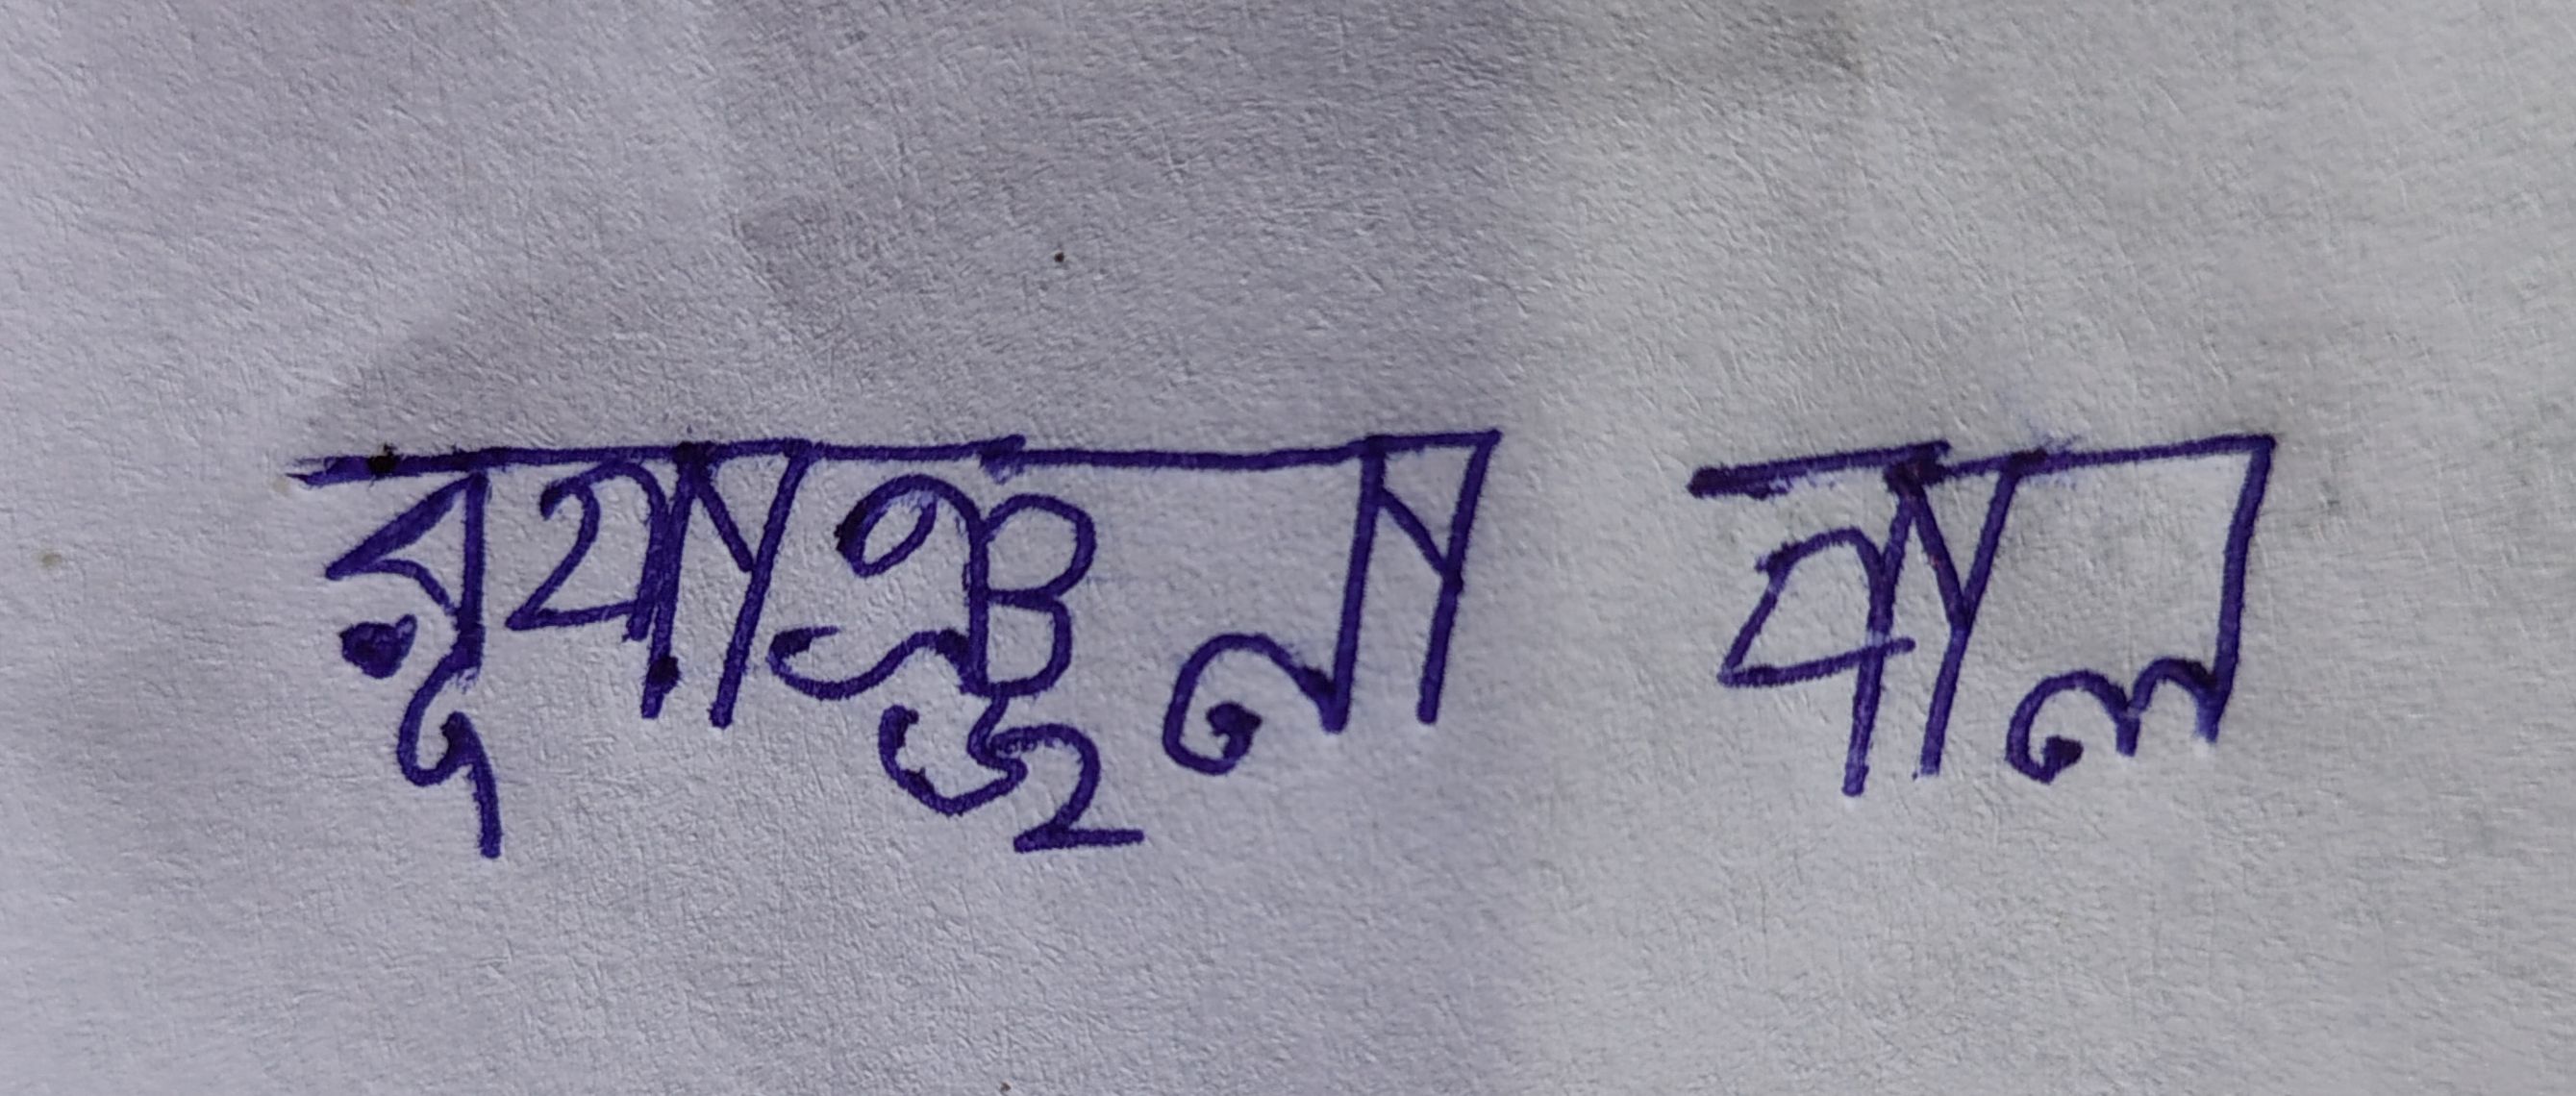 রূপাঞ্জনা পাল